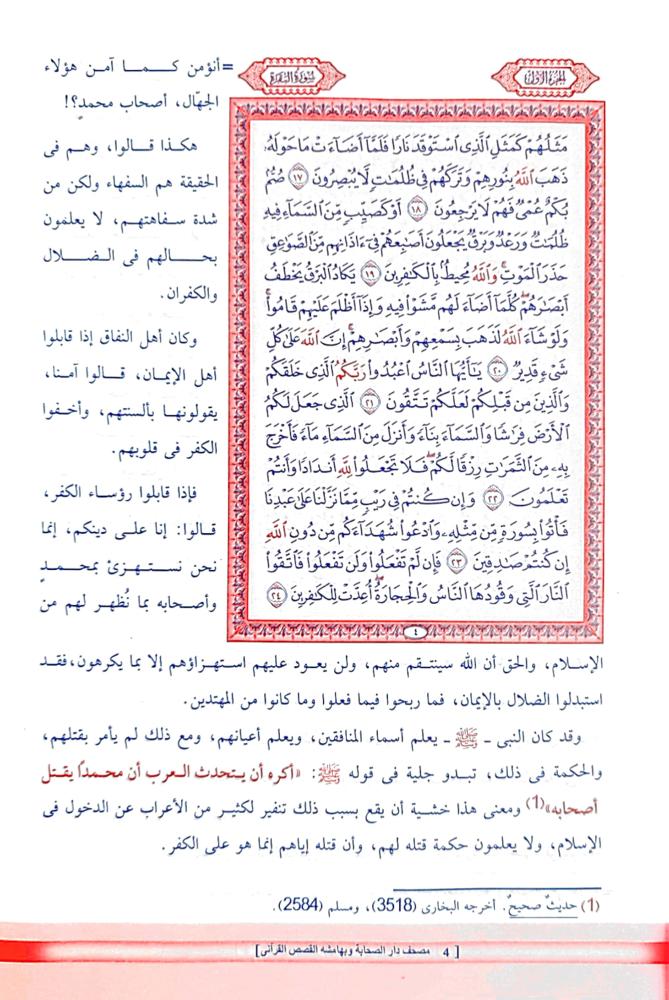 الجزء الأول
سورة البقرة
مَثَلُهُمْ كَمَثَلِ ٱلَّذِى ٱسْتَوْقَدَ نَارًا فَلَمَّآ أَضَآءَتْ مَا حَوْلَهُۥ
ذَهَبَ ٱللَّهُ بِنُورِهِمْ وَتَرَكَهُمْ فِى ظُلُمَٰتٍ لَّا يُبْصِرُونَ ١٧ صُمٌّۢ
بُكْمٌ عُمْىٌ فَهُمْ لَا يَرْجِعُونَ ١٨ أَوْ كَصَيِّبٍ مِّنَ ٱلسَّمَآءِ فِيهِ
ظُلُمَٰتٌ وَرَعْدٌ وَبَرْقٌ يَجْعَلُونَ أَصَٰبِعَهُمْ فِىٓ ءَاذَانِهِم مِّنَ ٱلصَّوَٰعِقِ
حَذَرَ ٱلْمَوْتِ ۚ وَٱللَّهُ مُحِيطٌۢ بِٱلْكَٰفِرِينَ ١٩ يَكَادُ ٱلْبَرْقُ يَخْطَفُ
أَبْصَٰرَهُمْ ۖ كُلَّمَآ أَضَآءَ لَهُم مَّشَوْا۟ فِيهِ وَإِذَآ أَظْلَمَ عَلَيْهِمْ قَامُوا۟ ۚ
وَلَوْ شَآءَ ٱللَّهُ لَذَهَبَ بِسَمْعِهِمْ وَأَبْصَٰرِهِمْ ۚ إِنَّ ٱللَّهَ عَلَىٰ كُلِّ
شَىْءٍ قَدِيرٌ ٢٠ يَٰٓأَيُّهَا ٱلنَّاسُ ٱعْبُدُوا۟ رَبَّكُمُ ٱلَّذِى خَلَقَكُمْ
وَٱلَّذِينَ مِن قَبْلِكُمْ لَعَلَّكُمْ تَتَّقُونَ ٢١ ٱلَّذِى جَعَلَ لَكُمُ
ٱلْأَرْضَ فِرَٰشًا وَٱلسَّمَآءَ بِنَآءً وَأَنزَلَ مِنَ ٱلسَّمَآءِ مَآءً فَأَخْرَجَ
بِهِۦ مِنَ ٱلثَّمَرَٰتِ رِزْقًا لَّكُمْ ۖ فَلَا تَجْعَلُوا۟ لِلَّهِ أَندَادًا وَأَنتُمْ
تَعْلَمُونَ ٢٢ وَإِن كُنتُمْ فِى رَيْبٍ مِّمَّا نَزَّلْنَا عَلَىٰ عَبْدِنَا
فَأْتُوا۟ بِسُورَةٍ مِّن مِّثْلِهِۦ وَٱدْعُوا۟ شُهَدَآءَكُم مِّن دُونِ ٱللَّهِ
إِن كُنتُمْ صَٰدِقِينَ ٢٣ فَإِن لَّمْ تَفْعَلُوا۟ وَلَن تَفْعَلُوا۟ فَٱتَّقُوا۟
ٱلنَّارَ ٱلَّتِى وَقُودُهَا ٱلنَّاسُ وَٱلْحِجَارَةُ ۖ أُعِدَّتْ لِلْكَٰفِرِينَ ٢٤
٤
=أنؤمن كما آمن هؤلاء
الجهّال، أصحاب محمدٍ؟!
هكذا قالوا، وهم فى
الحقيقة هم السفهاء ولكن من
شدة سفاهتهم، لا يعلمون
بحالهم فى الضلال
والكفران.
وكان أهل النفاق إذا قابلوا
أهل الإيمان، قالوا آمنا،
يقولونها بألسنتهم، وأخفوا
الكفر فى قلوبهم.
فإذا قابلوا رؤساء الكفر،
قالوا: إنا على دينكم، إنما
نحن نستهزئ بمحمدٍ
وأصحابه بما نُظهر لهم من
الإسلام، والحق أن الله سينتقم منهم، ولن يعود عليهم استهزاؤهم إلا بما يكرهون، فقد
استبدلوا الضلال بالإيمان، فما ربحوا فيما فعلوا وما كانوا من المهتدين.
وقد كان النبى ـ ﷺ ـ يعلم أسماء المنافقين، ويعلم أعيانهم، ومع ذلك لم يأمر بقتلهم،
والحكمة فى ذلك، تبدو جلية فى قوله ﷺ: «أكره أن يتحدث العرب أن محمدًا يقتل
أصحابه»(1) ومعنى هذا خشية أن يقع بسبب ذلك تنفير لكثير من الأعراب عن الدخول فى
الإسلام، ولا يعلمون حكمة قتله لهم، وأن قتله إياهم إنما هو على الكفر.
(1) حديثٌ صحيحٌ. أخرجه البخارى (3518)، ومسلم (2584).
[ 4 مصحف دار الصحابة وبهامشه القصص القرآنى]